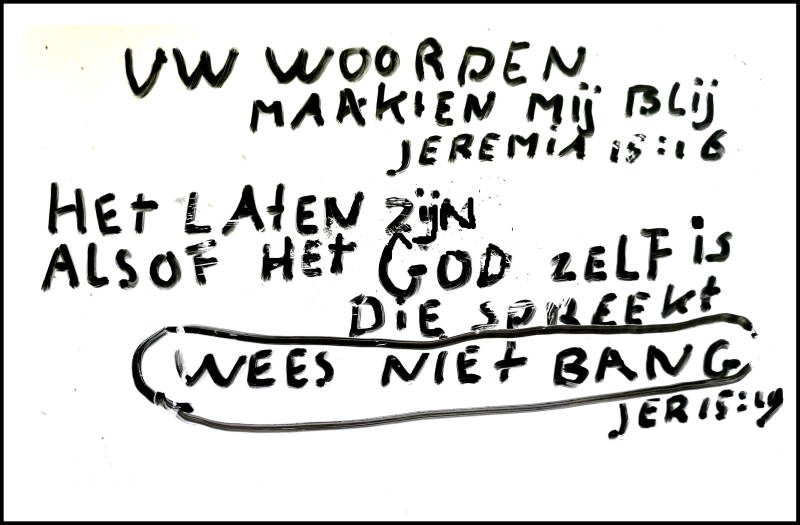 UW WOORDEN
MAAKTEN MIJ BLIJ
JEREMIA 15:16
HET LATEN ZIJN
ALSOF HET GOD ZELF IS
DIE SPREEKT
WEES NIET BANG
JER 15:19